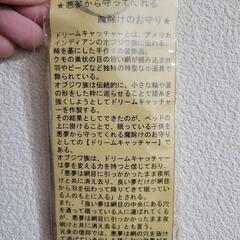 ★悪夢から守ってくれる
魔除けのお守り★
ドリームキャッチャーとは、アメリカ
インディアンのオブジワ族に伝わる
輪を基にした手作りの装飾品。
クモの巣状の目の粗い網が組み込まれ
羽やビーズなど独特の神聖な小道具で
飾られている。
オブジワ族は伝統的に、小さな輪や涙
の形をした枠に巡らせることで
糸をしようとしてドリームキャッチャー
を作製する。
その結果としてできたのが、ベッドの
上に掛けることで、眠っている子供を
悪夢から守ってくれる魔除けのお守り
としての【ドリームキャッチャー】で
ある。
オブジワ族は、ドリームキャッチャー
は夢を変える力を持つと信じており、
「悪夢は網目に引っかかったまま夜明
けと共に消え去り、良い夢だけが網目
から羽を伝わって降りてきて眠ってい
る人のもとに入る」とされる。
また、「良い夢は網目の中央にある穴
を通って眠っている人に運ばれてくる
が、悪夢は網目に引っかかったまま夜
明けと共に消え去る」とも言う。
元来の信仰では、悪夢は網の穴を抜け